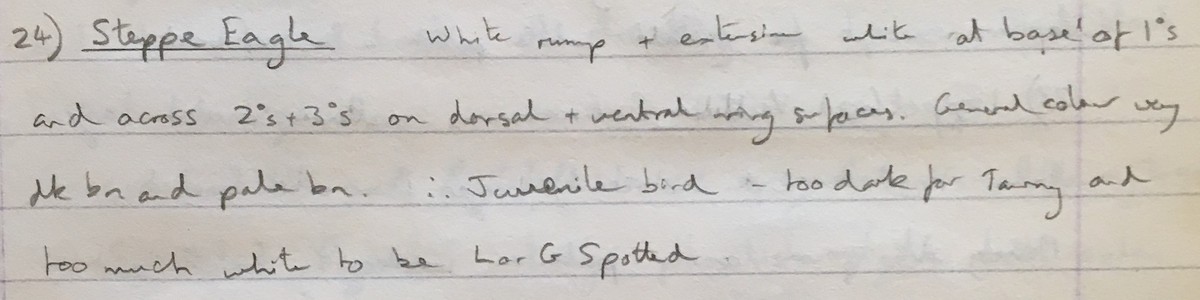 24) Steppe Eagle White rump + extension white at base of 1°s
and across 2°s + 3°s on dorsal + ventral wing surfaces. General colour very
dk bn and pale bn. ∴ Juvenile bird - too dark for Tawny and
too much white to be L or G Spotted.